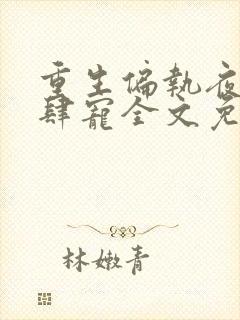 重生偏执夜
肆寵全文免
林嫩青